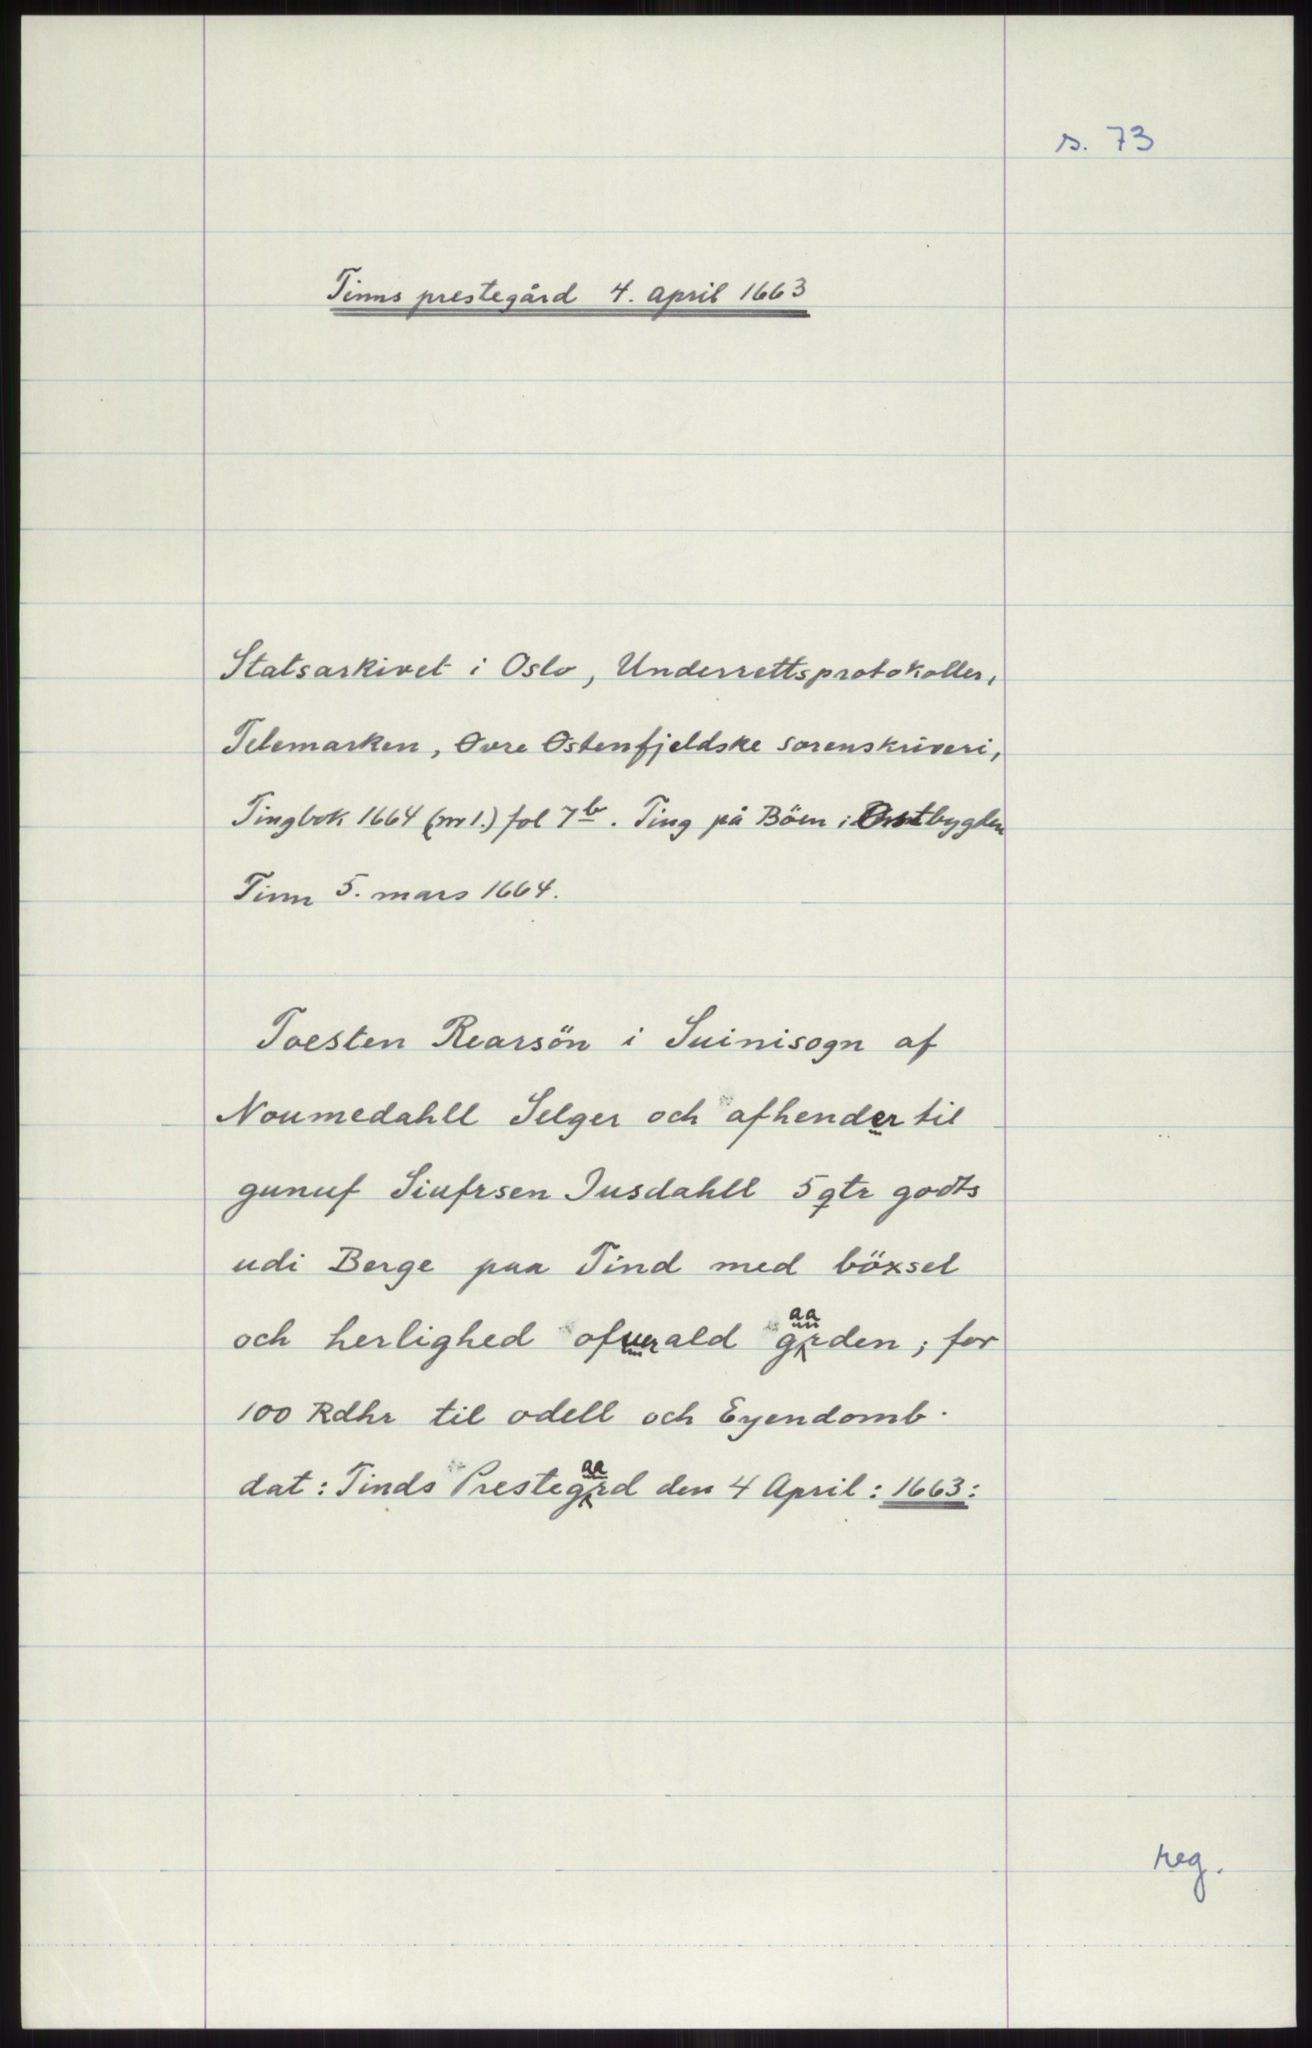 s. 73
Tinns prestegård 4. april 1663
Statsarkivet i Oslo, Underrettsprotokoller,
Telemarken, Øvre Østenfjeldske sorenskriveri,
Tingbok 1664 (nr 1.) fol 7b. Ting på Böen i Østbygden
Tinn 5. mars 1664.
Toesten Rearsön i Suinisogn af
Noumedahll Selger och afhender til
gunuf Siufrsen Jusdahll 5 qtr godts
udi Berge paa Tind med böxsel
och herlighed ofuerald gaarden; for
100 Rdhr til odell och Eyendomb.
dat: Tinds Prestegaard den 4 April: 1663:
reg.